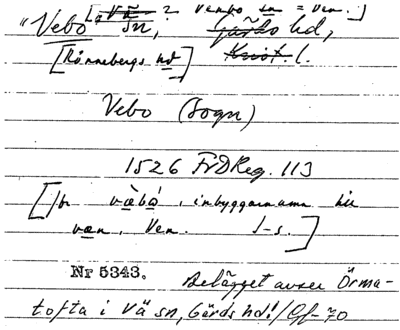 [Vä ? Venbo sn = Ven.]
"Vebo sn, Gärds hd,
[Rönnebergs hd] Krist. l.
Vebo (Sogn)
1526 FrDReg. 113
[Jfr väbo, inbyggarnamn till
væn, Ven. J-s.]
Nr 5343. Belägget avser Örma-
tofta i Vä sn, Gärds hd! / Gf-70